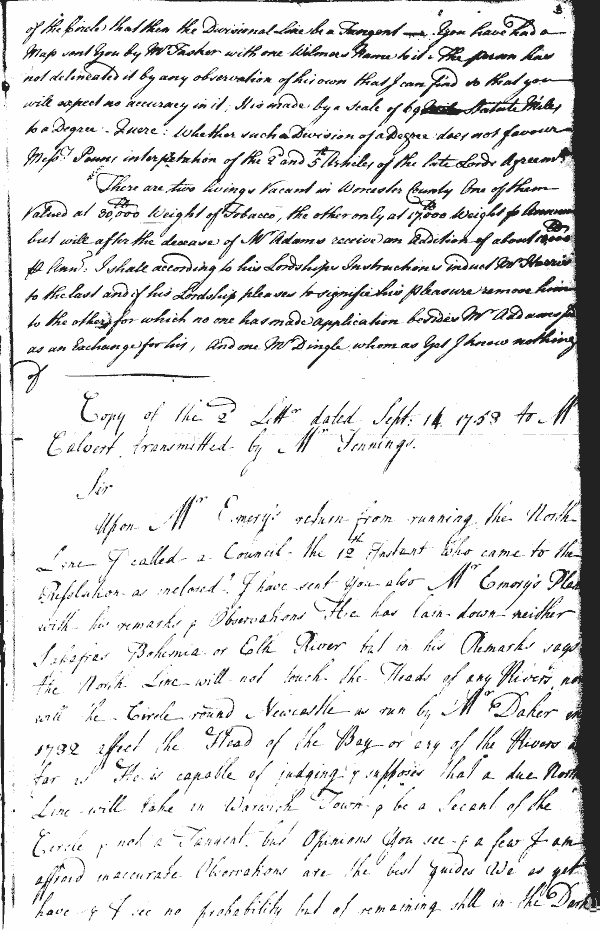 of the Circle that then the Divisional Line be a Tangent — You have had a
Map sent You by Mr Tasker with one Wilmers Name to it. The person has
not delineated it by any observation of his own that I can find so that you
will expect no accuracy in it. It is made by a Scale of 69 Statute Miles
to a Degree. Quere: Whether such a Division of a Degree does not favour
Messrs Penns interpretation of the 2d and 5th Articles of the late Lords Agreemt
There are two livings Vacant in Worcester County One of them
Valued at 30,000 Weight of Tobacco, the other only at 17,000 Weight
but will after the decease of Mr Adams receive an Addition of about
Ann. I shall according to his Lordships Instructions induct Mr Harris
to the last and if his Lordship pleases to signifie his pleasure remove him
to the other for which no one has made Application besides Mr Addams
as an Exchange for his, And one Mr Dingle whom as Yet I know nothing
of
Copy of the 2d Lettr dated Sept: 14 1753 to Mr
Calvert transmitted by Mr Jennings.
Sir
Upon Mr Emory's return from running the North
Line I called a Council the 12th Instant who came to the
Resolution as inclosed. I have sent You also Mr Emory's Plan
with his remarks & Observations He has lain down neither
Sasafras Bohemia or Elk River but in his Remarks says
the North Line will not touch the Heads of any Rivers nor
will the Circle round Newcastle as run by Mr in
1732 affect the Head of the Bay or any of the Rivers
far as He is capable of judging & supposes that a due North
Line will take in Warwick Town & be a Secant of the
Circle & not a Tangent, but Opinions You see & a few I am
affraid inaccurate Observations are the best guides We as yet
have & I see no probability but of remaining still in the Dark